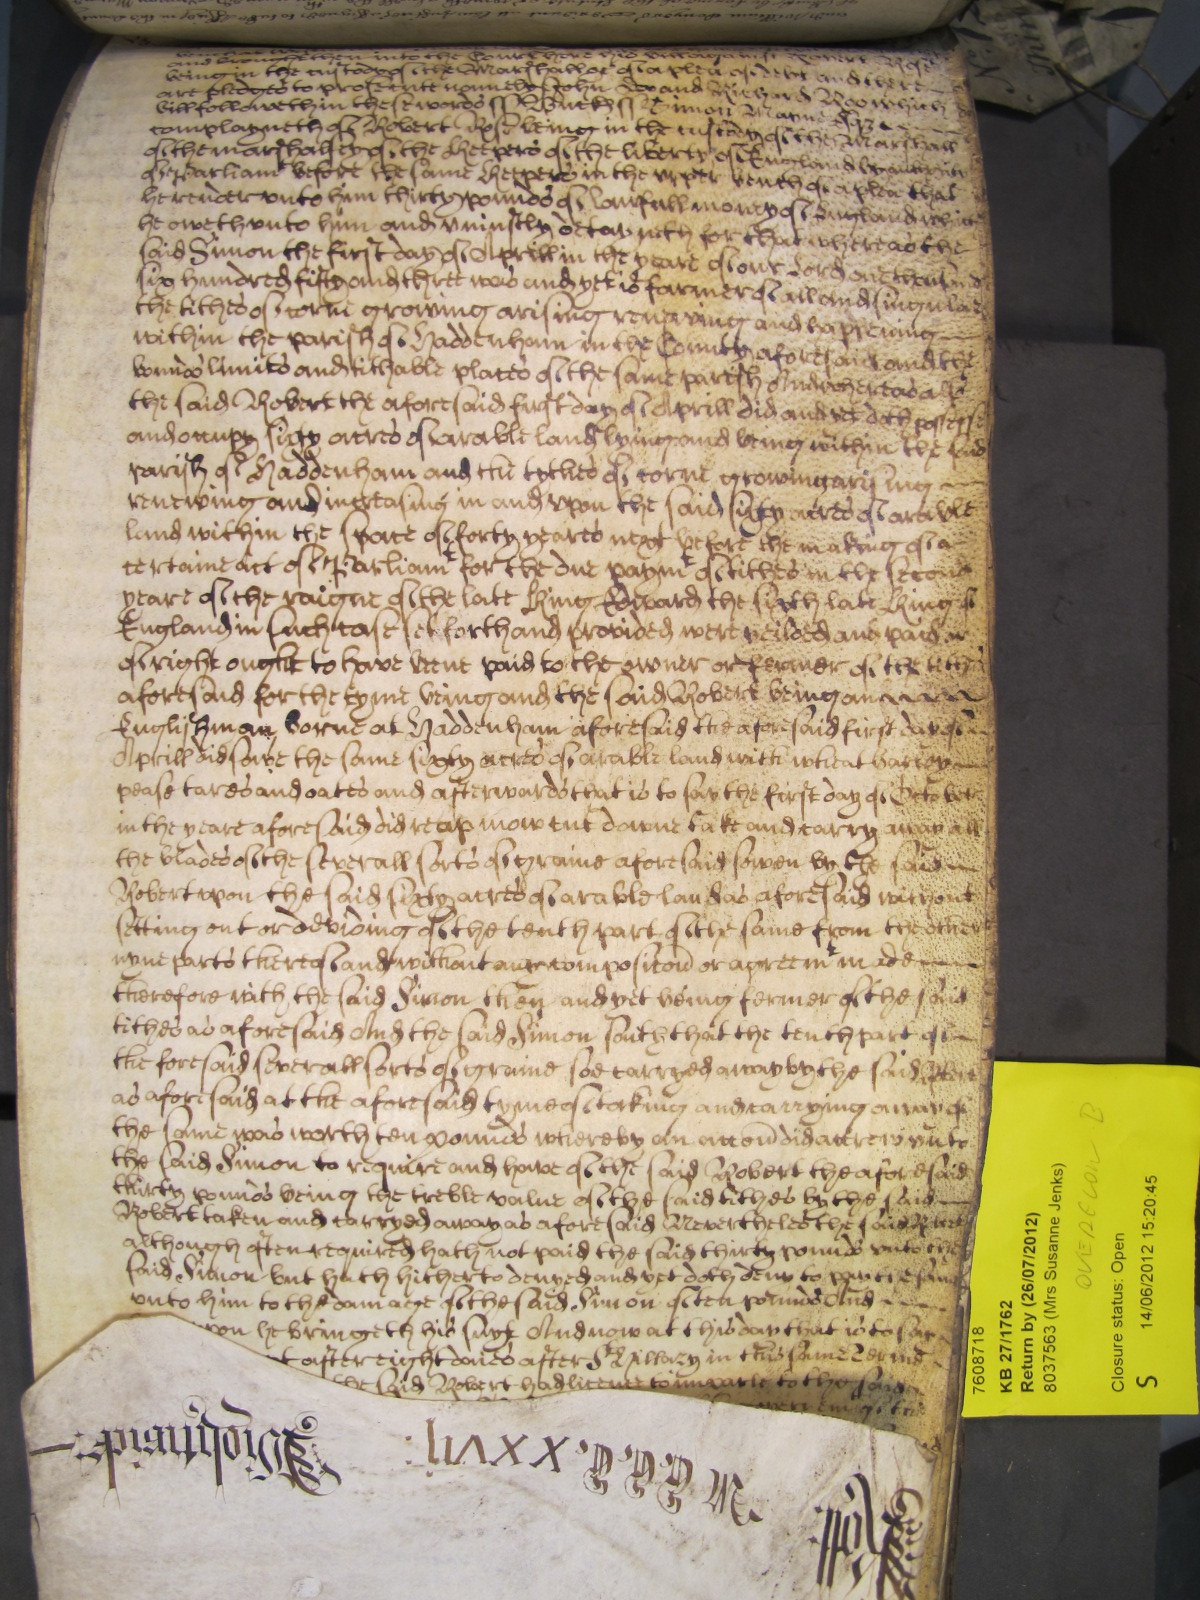 and brought then into the Court here his bill against Robert Rose
being in the custody of the Marshall &c of a plea of debt and there
are pledges to prosecute namely John Doo and Richard Roo which
bill followeth in these words ss Bucks ss Simon Mayne Esqr
complayneth of Robert Rose being in the custody of the Marshall
of the marshalsey of the Keepers of the liberty of England by authority
of Parliamt before the same Keepers in the upper bench of a plea that
he render unto him thirty pounds of lawfull money of England which
he oweth unto him and uniustly detayneth for that whereas the
said Simon the first day of Aprill in the yeare of our Lord one thousand
six hundred fifty and three was and yet is farmer of all and singular
the tithes of corne growing arising renewing and happening
within the parish of Haddenham in the County aforesaid and the
bounds limits and tithable places of the same parish And whereas also
the said Robert the aforesaid first day of Aprill did and yet doth possesse
and occupy sixty acres of arable land lying and being within the said
parish of Haddenham and the tythes of corne growing arising
renewing and increasing in and upon the said sixty acres of arable
land within the space of forty yeares next before the making of a
certaine act of Parliamt for the due paymt of tithes in the second
yeare of the raigne of the late King Edward the sixth late King of
England in such case set forth and provided were yeilded and paid or
of right ought to have bene paid to the owner or fermer of the tithes
aforesaid for the tyme being and the said Robert being an
Englishman borne at Haddenham aforesaid the aforesaid first day of
Aprill did sowe the same sixty acres of arable land with wheat barley
pease tares and oates and afterwards that is to say the first day of October
in the yeare aforesaid did reap mow cut downe take and carry away all
the blades of the severall sorts of graine aforesaid sowen by the said
Robert upon the said sixty acres of arable land as aforesaid without
setting out or deviding of the tenth part of the same from the other
nyne parts thereof and without any composicon or agreemt made
therefore with the said Simon then and yet being fermer of the said
tithes as aforesaid And the said Simon saith that the tenth part of
the foresaid severall sorts of graine soe carryed away by the said Robert
as aforesaid at the aforesaid tyme of taking and carrying away of
the same was worth ten pounds whereby an accon did accrew unto
the said Simon to require and have of the said Robert the aforesaid
thirty pounds being the treble value of the said tithes by the said
Robert taken and carryed away as aforesaid Nevertheles the said Robert
although often required hath not paid the said thirty pounds unto the
said Simon but hath hitherto denyed and yet doth deny to pay the same
unto him to the damage of the said Simon of ten pounds And
upon he bringeth his suyt And now at this day that is to say
after eight daies after St Hillary in this same Terme
the said Robert had licence to imparle to the said
M CCCC xxvij
Roll
7608718
KB 27/1762
Return by (26/07/2012)
8037563 (Mrs Susanne Jenks)
Closure status: Open
S 14/06/2012 15:20:45